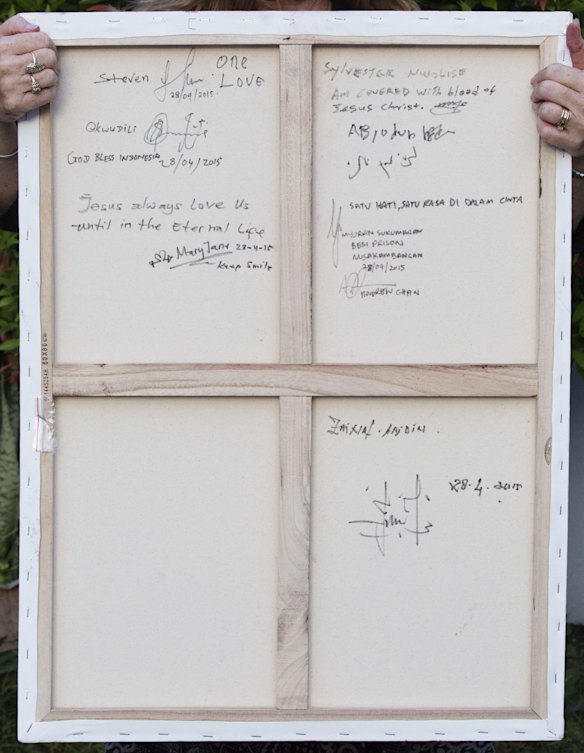 Steven
ONE
LOVE
28/04/2015
OKWUDILI
GOD BLESS INDONESIA 28/04/2015
Jesus always Love Us
until in the Eternal Life
MaryJane 28-4-15
Keep Smile
SYLVESTER NWOLISE
AM COVERED WITH blood of
Jesus Christ.
SATU HATI, SATU RASA DI DALAM CINTA
MYURAN SUKUMARAN
BESI PRISON
NUSAKAMBANGAN
28/04/2015
ANDREW CHAN
ZAINAL. ABIDIN.
28.4.2015